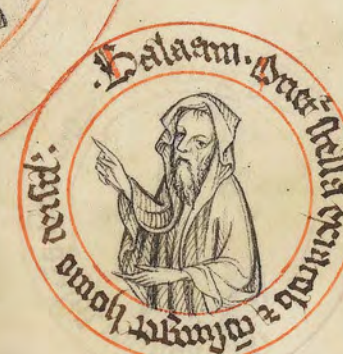 ·Balaam· Oriet̉ stella ex iacob ⁊ cōsurget homo de isrl̕·